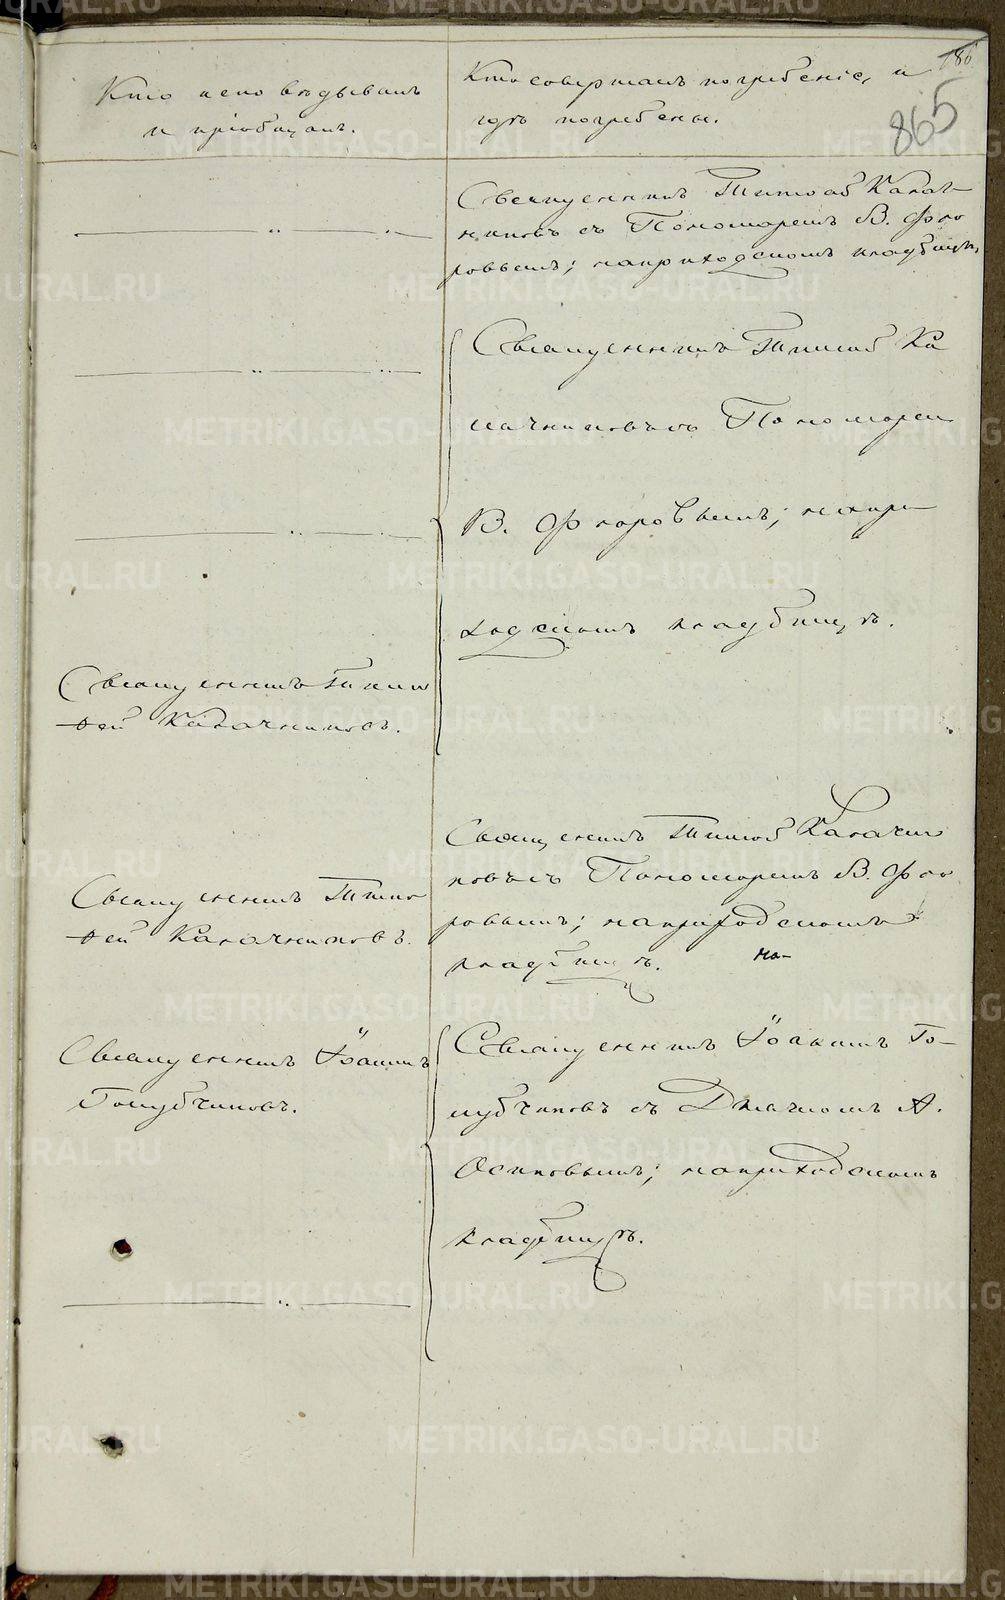 186
865
Кто исповѣдывалъ
и пріобщалъ.
Кто совершалъ погребеніе, и
гдѣ погребены.
Священникъ Тимоѳ Калач-
никовъ съ Пономаремъ В. Фло
ровымъ; на приходскомъ кладбищѣ
Священникъ Тимоѳ Ка
лачниковъ съ Пономарем
В. Флоровымъ; на при-
ходскомъ кладбищѣ.
Священникъ Тимо
ѳей Калачниковъ.
Священникъ Тимо
ѳей Калачниковъ.
Священникъ Тимоѳ Калачни
ковъ съ Пономаремъ В. Фло
ровымъ; на приходскомъ
кладбищѣ.
на-
Священникъ Іоаннъ
Голубчиковъ.
Священникъ Іоаннъ Го-
лубчиковъ съ Дьячкомъ А.
Осиповымъ; на приходскомъ
кладбищѣ.
METRIKI.GASO-URAL.RU